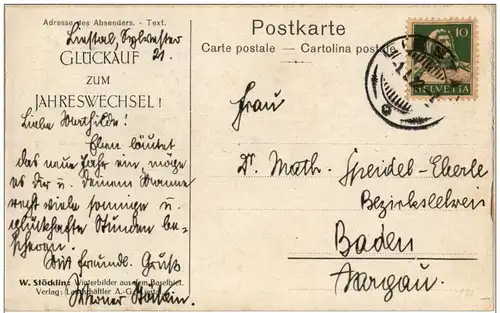 Adresse des Absenders. - Text.
Liestal, Sylvester
21.
GLÜCKAUF
ZUM
JAHRESWECHSEL!
Liebe Mathilde!
Eben läutet
das neue Jahr ein, möge
es dir u. deinem Manne
recht viele sonnige u.
glückhafte Stunden be-
scheren.
Mit freundl. Gruß
W. Stöcklin: Winterbilder aus dem Baselbiet.
Verlag: Lüdin
Werner Stöcklin.
Postkarte
Carte postale — Cartolina postale
10
HELVETIA
Frau
Dr. Math. Speidel-Eberle
Bezirkslehrers
Baden
Aargau.